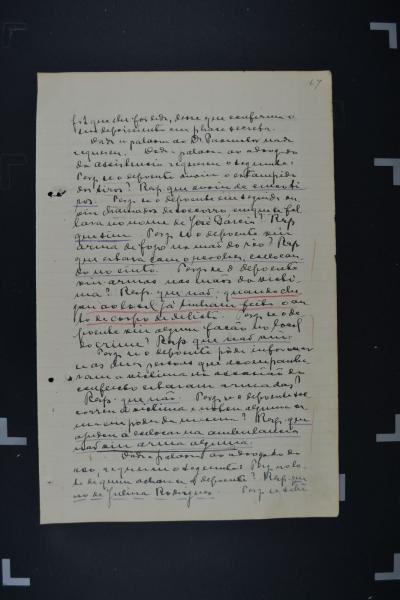 67
que lhe foi lida, disse que confirma o
seu depoimento em phase secreta.
Dada a palavra ao Dr. Promotor nada
requereu. Dada a palavra ao advogado
da assistencia requereu o seguinte:
Perg. se o depoente ouviu o estampido
dos tiros? Resp. que ouviu de
Perg. se o depoente em seguida ou-
viu chamados de soccorro em que se fal-
lava no nome de José Garcia? Resp.
que sim. Perg. se o depoente viu
arma de fogo na mão do réo? Resp.
que estava com o revolver, collocan-
do no cinto. Perg. se o depoente
viu armas nas mãos da victi-
ma? Resp. que não; quando che-
gou ao local já tinham feito o au-
to de corpo de delicto. Perg. se o de-
poente viu algum facão no local
do crime? Resp. que não viu
Perg. se o depoente póde informar
se as duas pessoas que acompanha-
vam a victima na occasião do
conflicto estavam armadas?
Resp. que não. Perg. se o depoente soc-
correu a victima e notou alguma ar-
ma em poder da mesma? Resp. que
ajudou a collocar na ambulancia
não viu arma alguma.
Dada a palavra ao advogado do
réo, requereu o seguinte: Perg.
de quem achava o depoente? Resp.
no de Julina Rodrigues. Perg. se